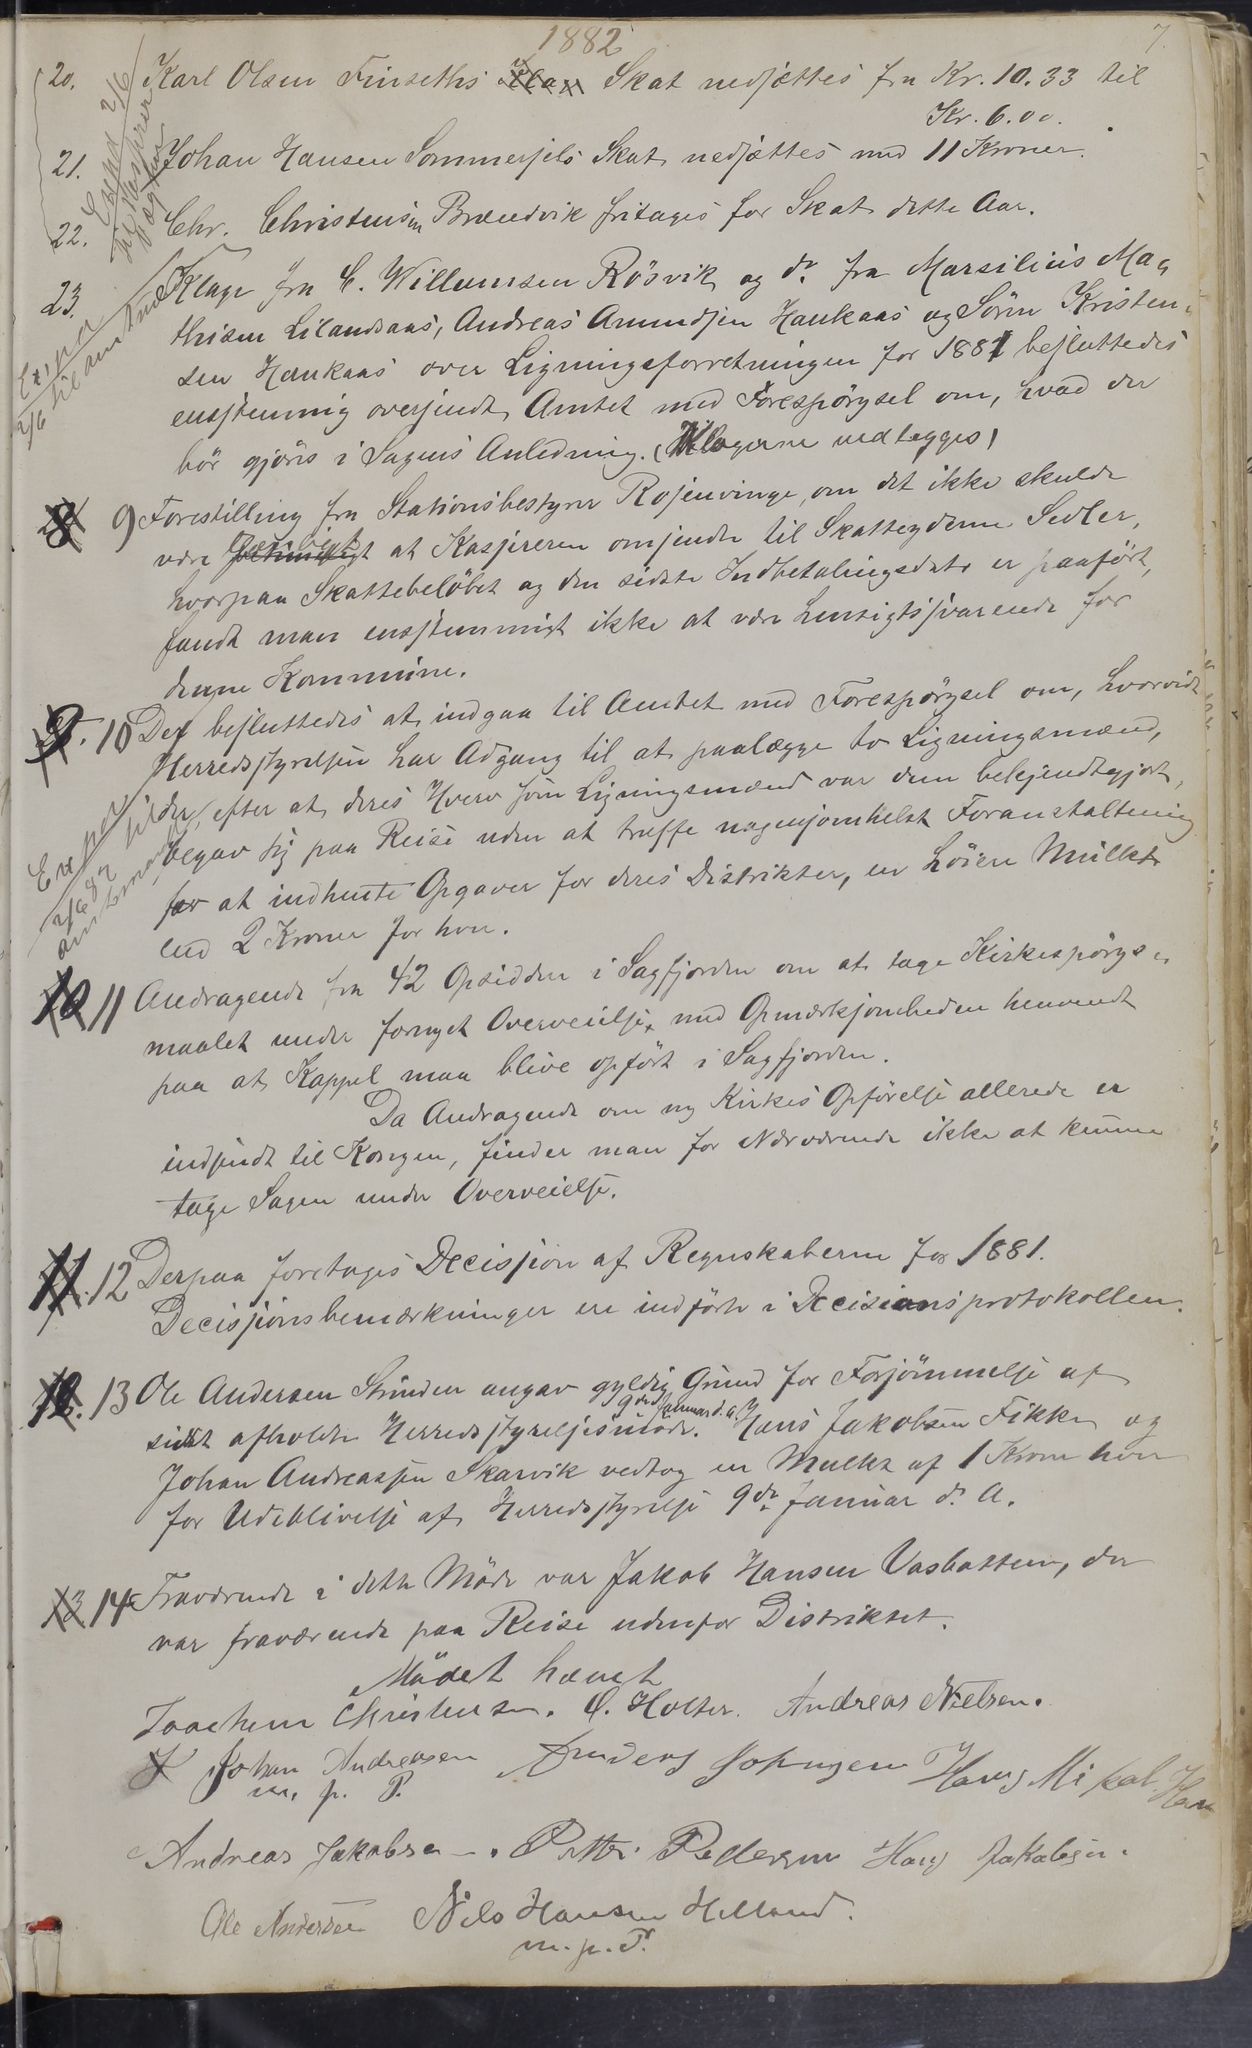 1882
7.
20. Karl Olsen Finseths Skat nedsættes fra Kr. 10.33 til
Kr. 6.00.
21. Johan Hansen Sommersels Skat nedsættes med 11 Kroner.
22. Chr. Christensen Brændvik fritages for Skat dette Aar.
23. Klage fra C. Willumsen Rösvik og do. fra Marsilius Ma-
thisen Lilandsaas, Andreas Amundsen Haukaas og Sören Kristen-
sen Haukaas over Ligningsforretningen for 1881 besluttedes
enstemmig oversendt Amtet med Forespörgsel om, hvad der
bör gjöres i Sagens Anledning. (Klagerne vedlegges)
8 9 Forestilling fra Stationsbestyrer Rosenvinge, om det ikke skulde
være at Kasjereren omsendte til Skatteyderne Sedler,
hvorpaa Skattebelöbet og den sidste Indbetalingsdato er paafört,
fandt man enstemmigt ikke at være hensigtssvarende for
denne Kommune.
9. 10 Det besluttedes at indgaa til Amtet med Forespörgsel om, hvorvidt
Herredsstyrelsen har Adgang til at paalægge to Ligningsmænd,
der, efter at deres Hverv som Ligningsmænd var dem bekjendtgjort,
begav sig paa Reise uden at træffe nogensomhelst Foranstaltning
for at indhente Opgaver for deres Distrikter, en höiere Mulkt
end 2 Kroner for hver.
10 11 Andragende fra 42 Opsiddere i Sagfjorden om at tage Kirkespörgs-
maalet under fornyet Overveielse, med Opmærksomheden henvendt
paa at Kappel maa blive opfört i Sagfjorden.
Da Andragende om ny Kirkes Opförelse allerede er
indsendt til Kongen, finder man for Nærværende ikke at kunne
tage Sagen under Overveielse.
11. 12 Derpaa foretages Decission af Regnskaberne for 1881.
Decissionsbemærkninger ere indförte i Decisionsprotokollen.
12. 13 Ole Andersen Strinden angav gyldig Grund for Forsömmelse af
9de Januar d. A.
sidst afholdte Herredsstyrelsesmöde. Hans Jakobsen Fikke og
Johan Andreassen Skarvik vedtog en Mulkt af 1 Krone hver
for Udeblivelse af Herredsstyrelse 9de Januar d. A.
13 14 Fraværende i dette Möde var Jakob Hansen Vasbotten, der
var fraværende paa Reise udenfor Distriktet.
Mödet hævet
Joachim Christensen. O. Holter. Andreas Nielsen.
Johan Andreasen Anders Johnsen Hans Mikal Han
m. p. P.
Andreas Jakobsen. Petter Pedersen Hans Jakobsen.
Ole Andersen Nils Hansen Helland.
m. p. P.
Exped 2/6
til Kasserer
og
Exped
2/6 til amtmd
Exped
2/6 82 til
amtmand